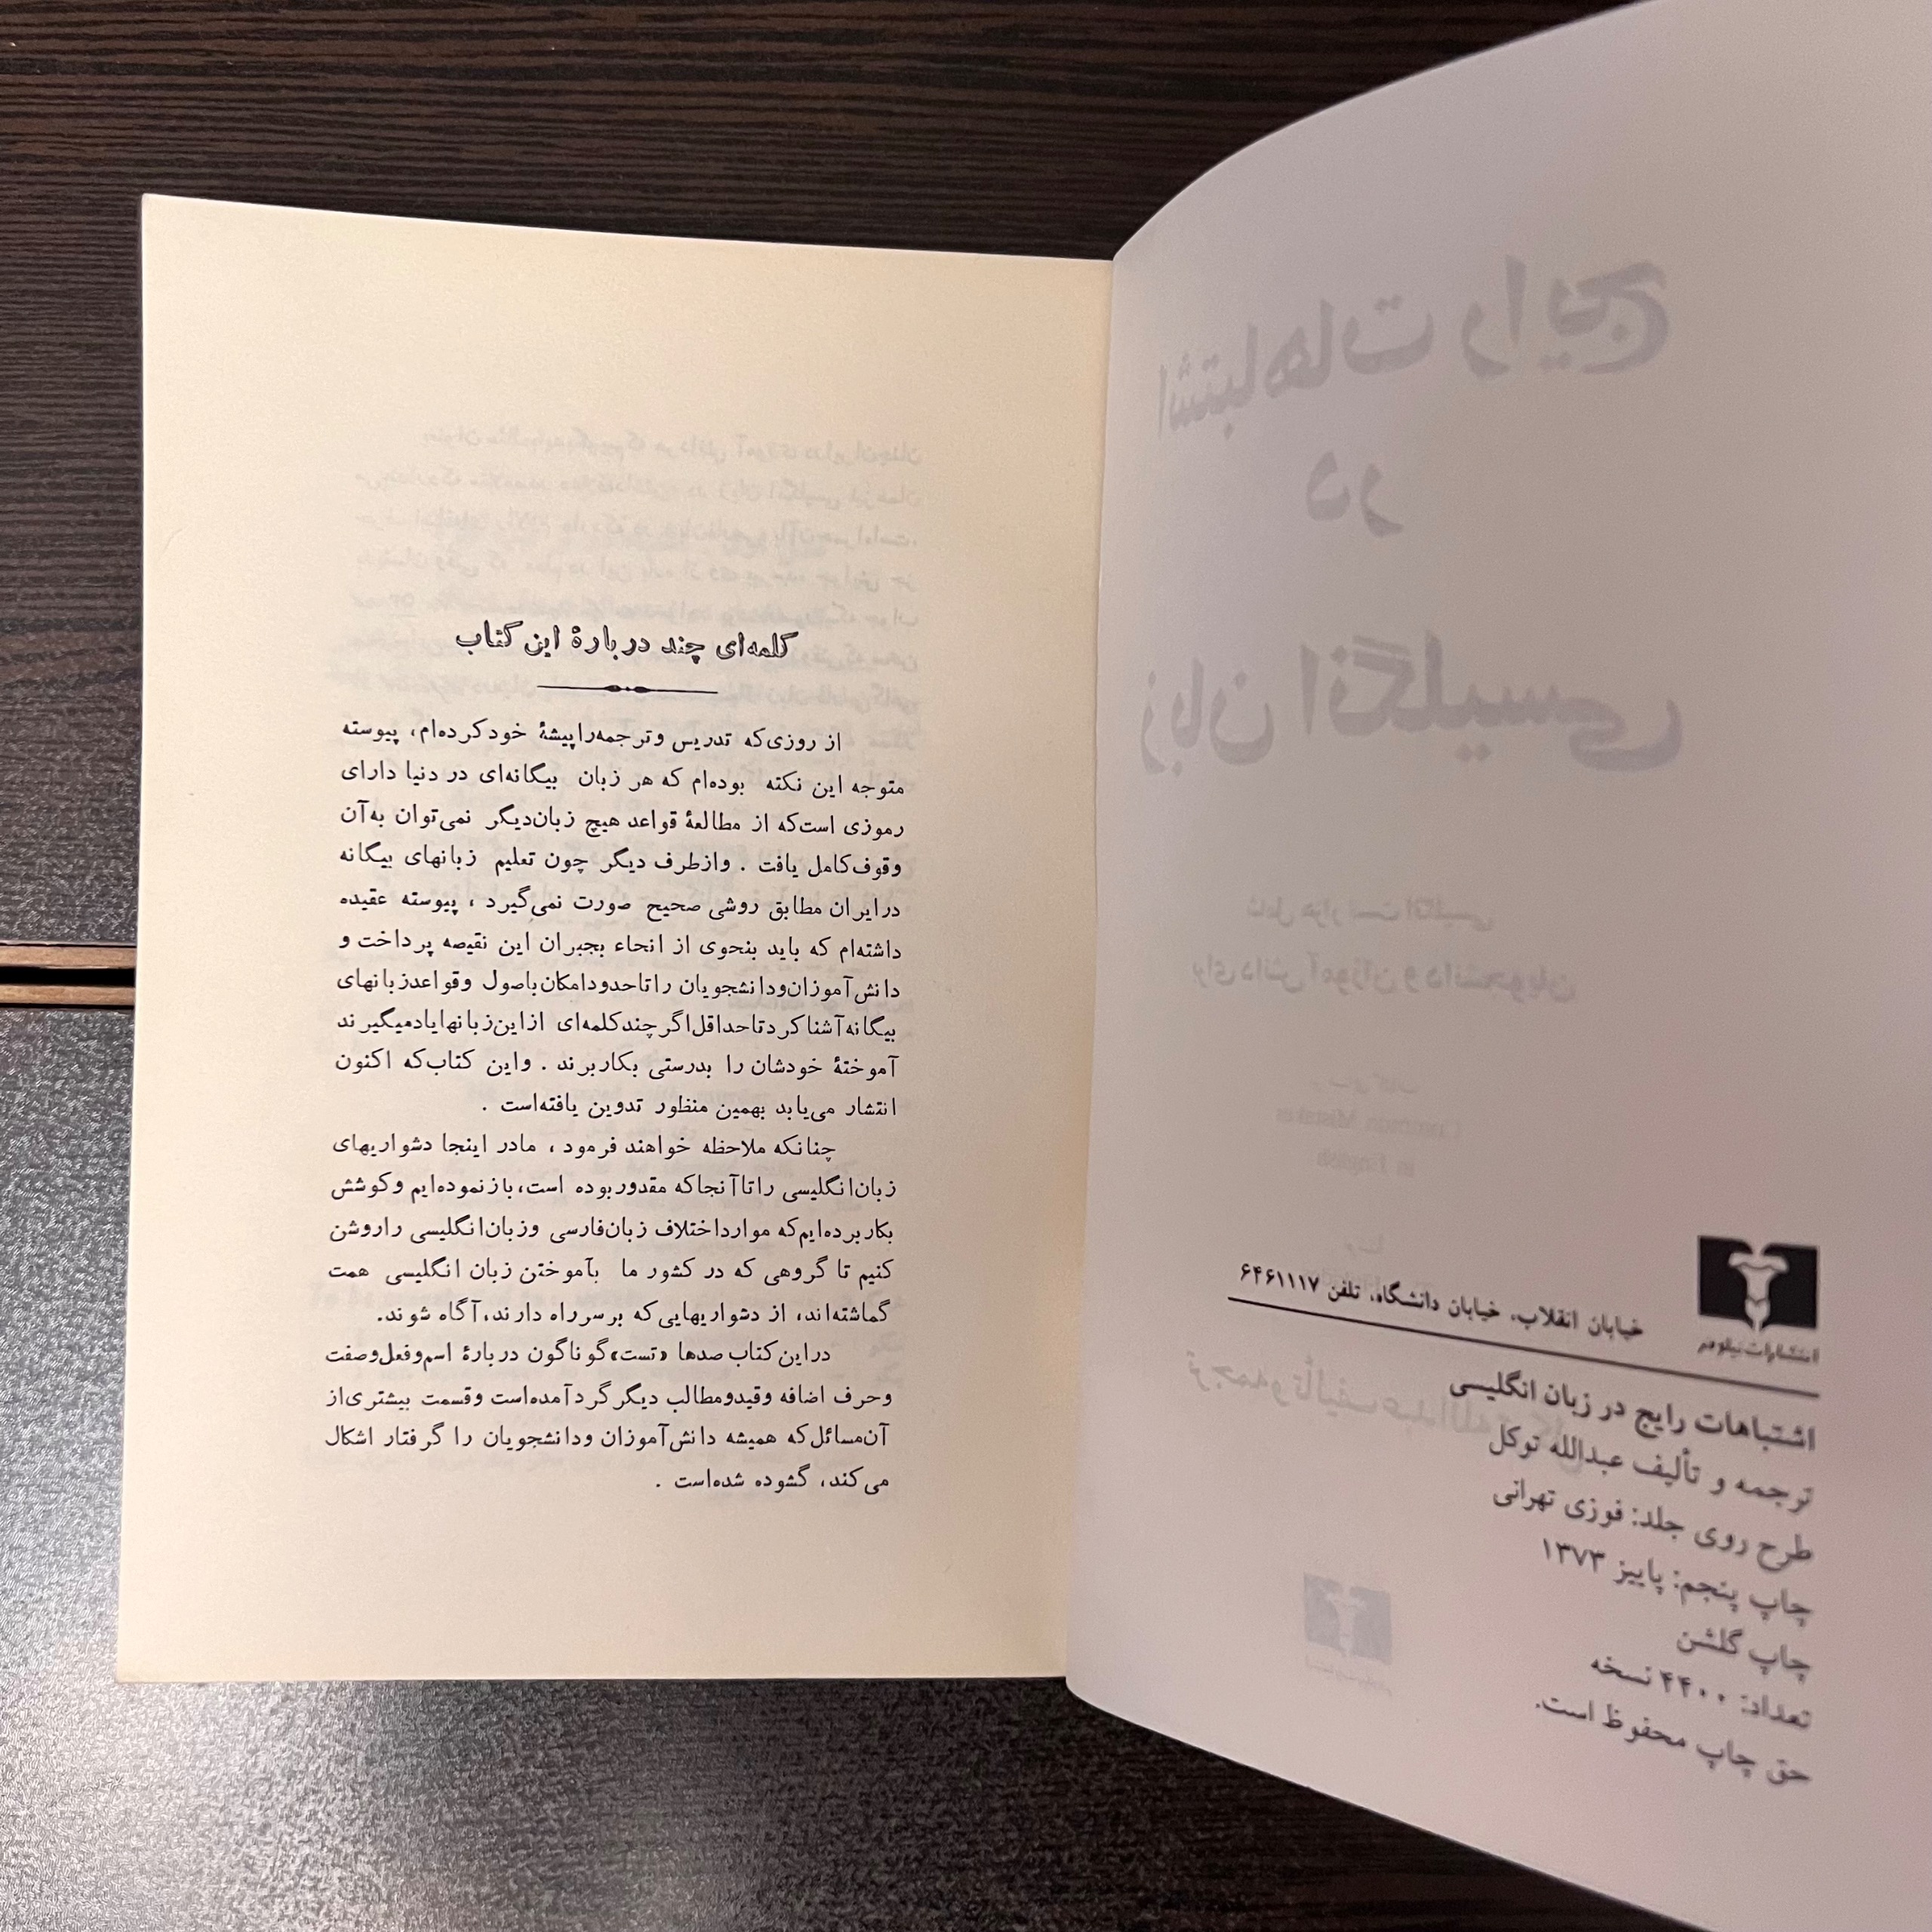 خیابان انقلاب، خیابان دانشگاه، تلفن ۶۴۶۱۱۱۷
انتشارات نیلوفر
اشتباهات رایج در زبان انگلیسی
ترجمه و تألیف عبدالله توکل
طرح روی جلد: فوزی تهرانی
چاپ پنجم: پاییز ۱۳۷۳
چاپ گلشن
تعداد: ۴۴۰۰ نسخه
حق چاپ محفوظ است.
اشتباهات رایج
در
زبان انگلیسی
شامل هزار تست انگلیسی
برای دانش آموزان و دانشجویان
Common Mistakes
in English
ترجمه و تألیف عبدالله توکل
کلمه‌ای چند در بارهٔ این کتاب
از روزی‌که تدریس وترجمه‌را پیشهٔ خود کرده‌ام، پیوسته
متوجه این نکته بوده‌ام که هر زبان بیگانه‌ای در دنیا دارای
رموزی است‌که از مطالعهٔ قواعد هیچ زبان‌دیگر نمی‌توان به‌آن
وقوف‌کامل یافت . وازطرف دیگر چون تعلیم زبانهای بیگانه
درایران مطابق روشی صحیح صورت نمی‌گیرد ، پیوسته عقیده
داشته‌ام که باید بنحوی از انحاء بجبران این نقیصه پرداخت و
دانش‌آموزان‌ودانشجویان را تا حدودامکان باصول وقواعدزبانهای
بیگانه‌آشنا کرد تاحداقل‌اگر چند کلمه‌ای ازاین‌زبانهایادمیگیرند
آموختهٔ خودشان را بدرستی بکاربرند . واین کتاب‌که اکنون
انتشار می‌یابد بهمین منظور تدوین یافته‌است .
چنانکه ملاحظه خواهند فرمود ، مادر اینجا دشواریهای
زبان‌انگلیسی را تا آنجا که مقدوربوده است، بازنموده‌ایم وکوشش
بکاربرده‌ایم‌که موارداختلاف زبان‌فارسی وزبان‌انگلیسی راروشن
کنیم تا گروهی که در کشور ما بآموختن زبان انگلیسی همت
گماشته‌اند، از دشواریهایی‌که برسرراه دارند، آگاه شوند.
دراین کتاب صدها «تست» گوناگون دربارهٔ اسم‌وفعل‌وصفت
وحرف اضافه وقیدومطالب دیگر گردآمده‌است وقسمت بیشتری‌از
آن‌مسائل‌که همیشه دانش‌آموزان ودانشجویان را گرفتار اشکال
می‌کند، گشوده شده‌است .